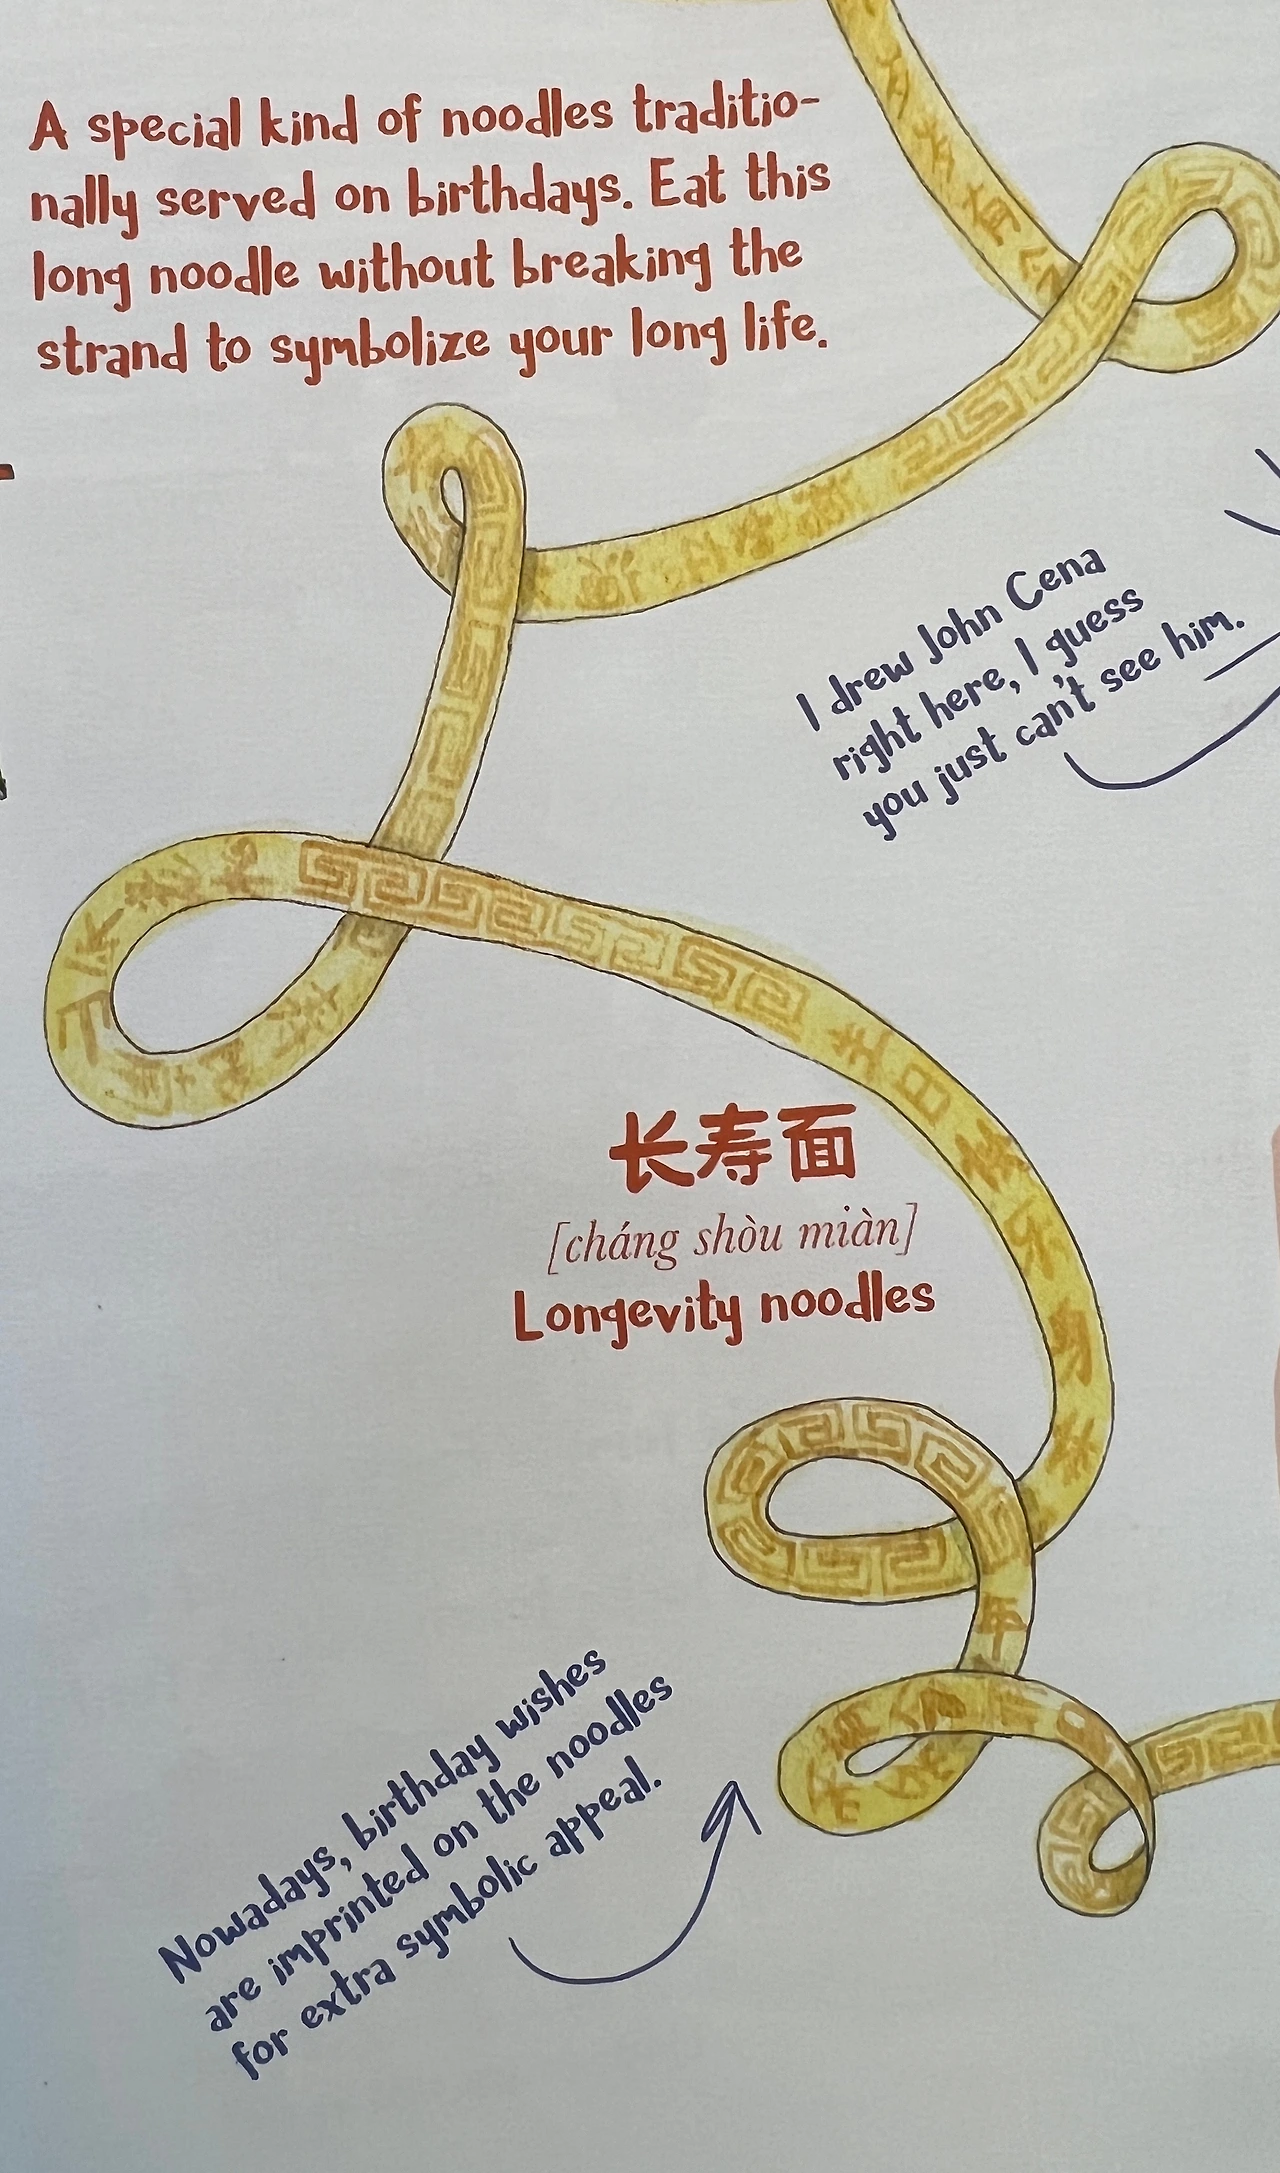 A special kind of noodles traditio-
nally served on birthdays. Eat this
long noodle without breaking the
strand to symbolize your long life.
I drew John Cena
right here, I guess
you just can't see him.
长寿面
[cháng shòu miàn]
Longevity noodles
Nowadays, birthday wishes
are imprinted on the noodles
for extra symbolic appeal.